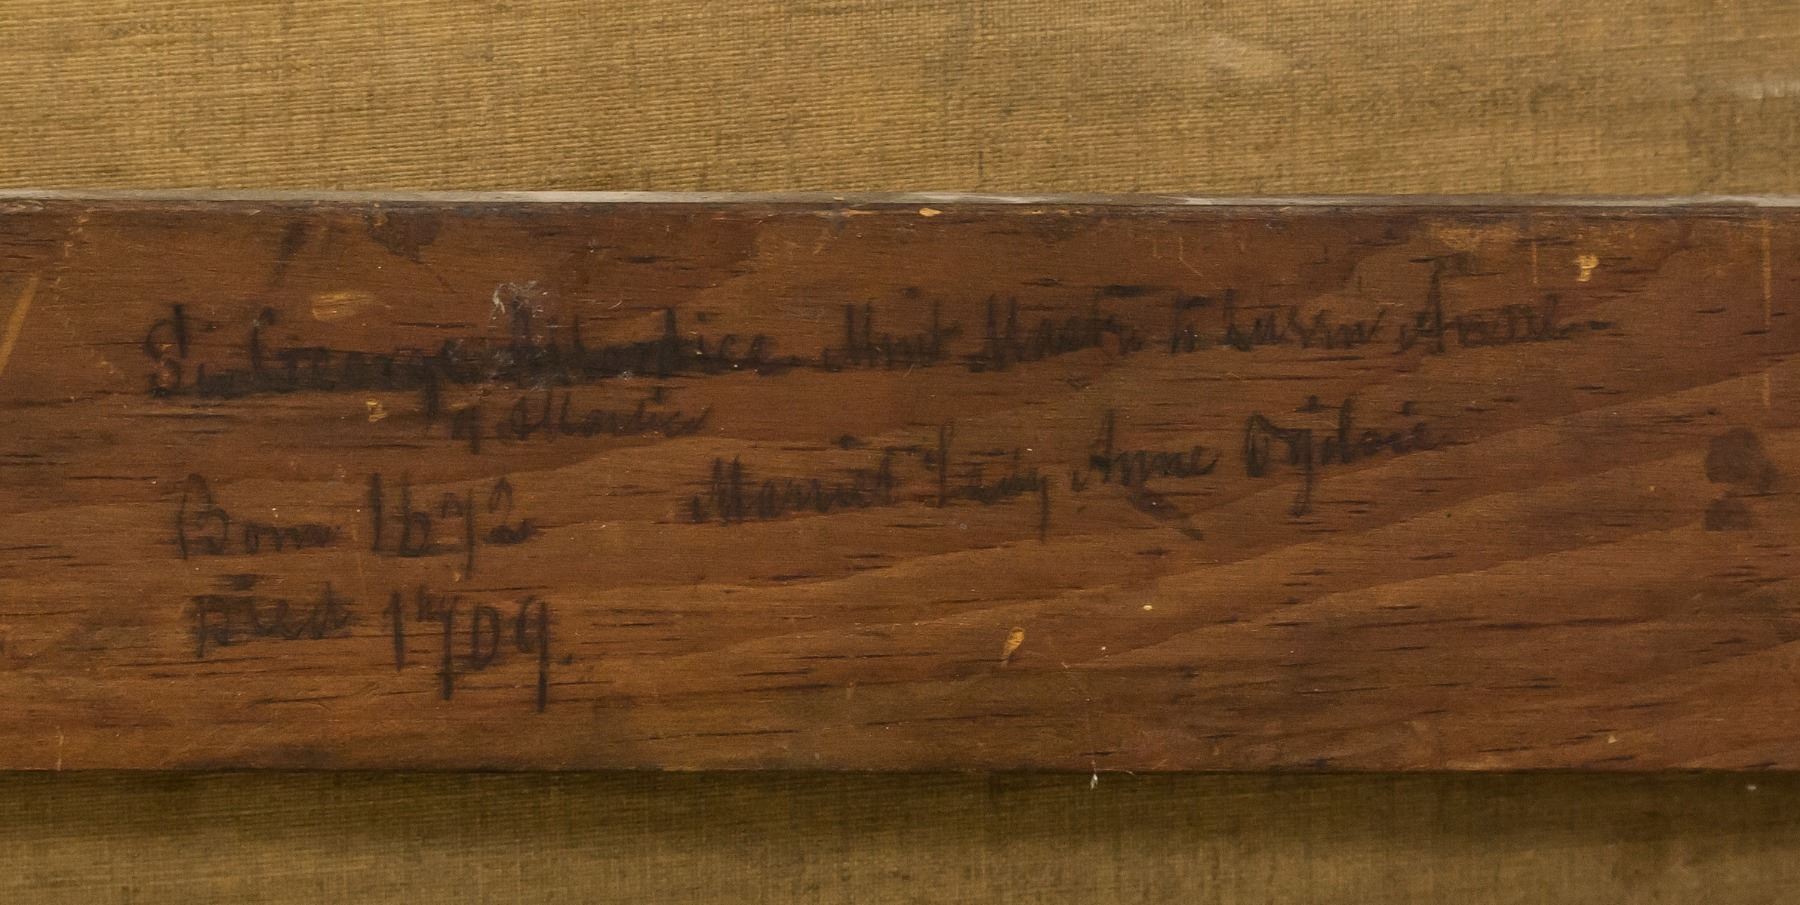 Sir George Allardice Mint Master to Queen Anne
of Allardice
Married Lady Anne Ogilvie
Born 1672
Died 1709.